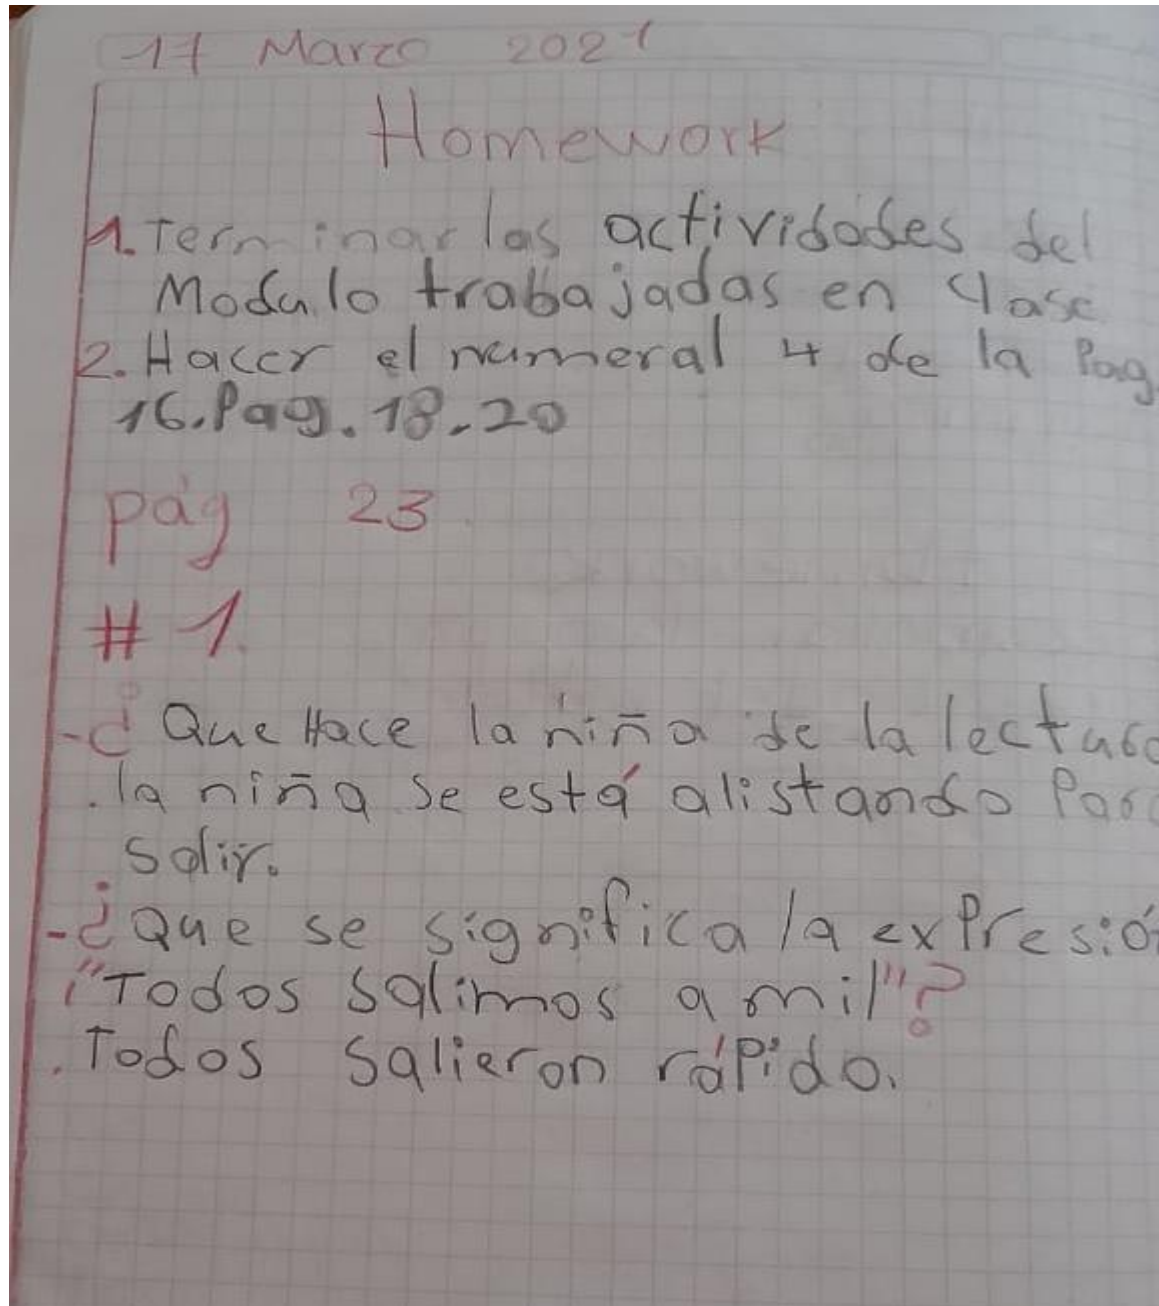 17 Marzo 2021
Homework
1. Terminar las actividades del
Modulo trabajadas en clase
2. Hacer el numeral 4 de la Pag.
16. Pag. 18-20
pág 23
# 1.
-¿Que Hace la niña de la lectura
. la niña se está alistando Para
salir.
-¿Que se significa la exPresión
¡"Todos salimos a mil"?
. Todos salieron ráPido.